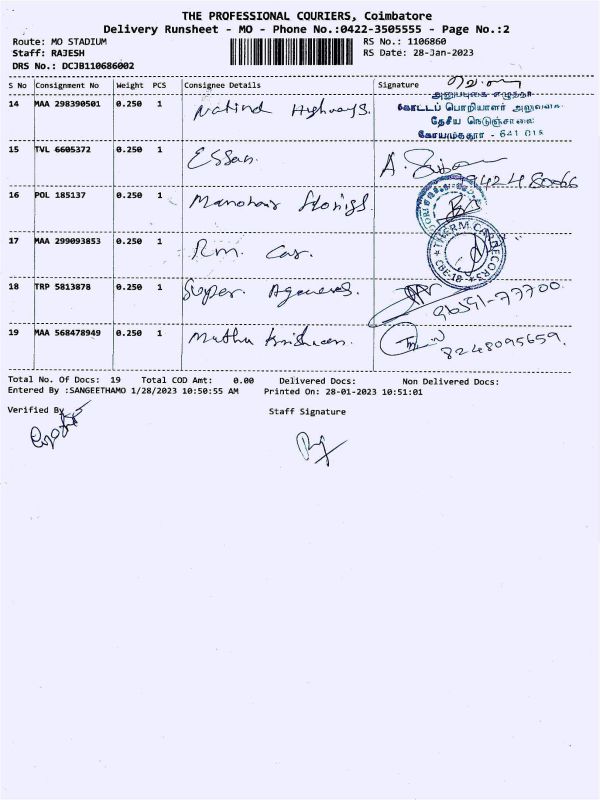 THE PROFESSIONAL COURIERS, Coimbatore
Delivery Runsheet - MO - Phone No.:0422-3505555 - Page No.:2
Route: MO STADIUM RS No.: 1106860
Staff: RAJESH RS Date: 28-Jan-2023
DRS No.: DCJB110686002
S No Consignment No Weight PCS Consignee Details Signature
14 MAA 298390501 0.250 1 Highways.
கோட்டப் பொறியாளர்
தேசிய நெடுஞ்சாலை
கோயமுத்தூர் - 641 018
15 TVL 6605372 0.250 1 ESSan. A.
16 POL 185137 0.250 1 Manohar
17 MAA 299093853 0.250 1 R.m. Car. THERM CARE
CBE-18
18 TRP 5813878 0.250 1 Super. 96591-77700
19 MAA 568478949 0.250 1 Muthu Krishnan. 8248095659.
Total No. Of Docs: 19 Total COD Amt: 0.00 Delivered Docs: Non Delivered Docs:
Entered By :SANGEETHAMO 1/28/2023 10:50:55 AM Printed On: 28-01-2023 10:51:01
Verified By Staff Signature